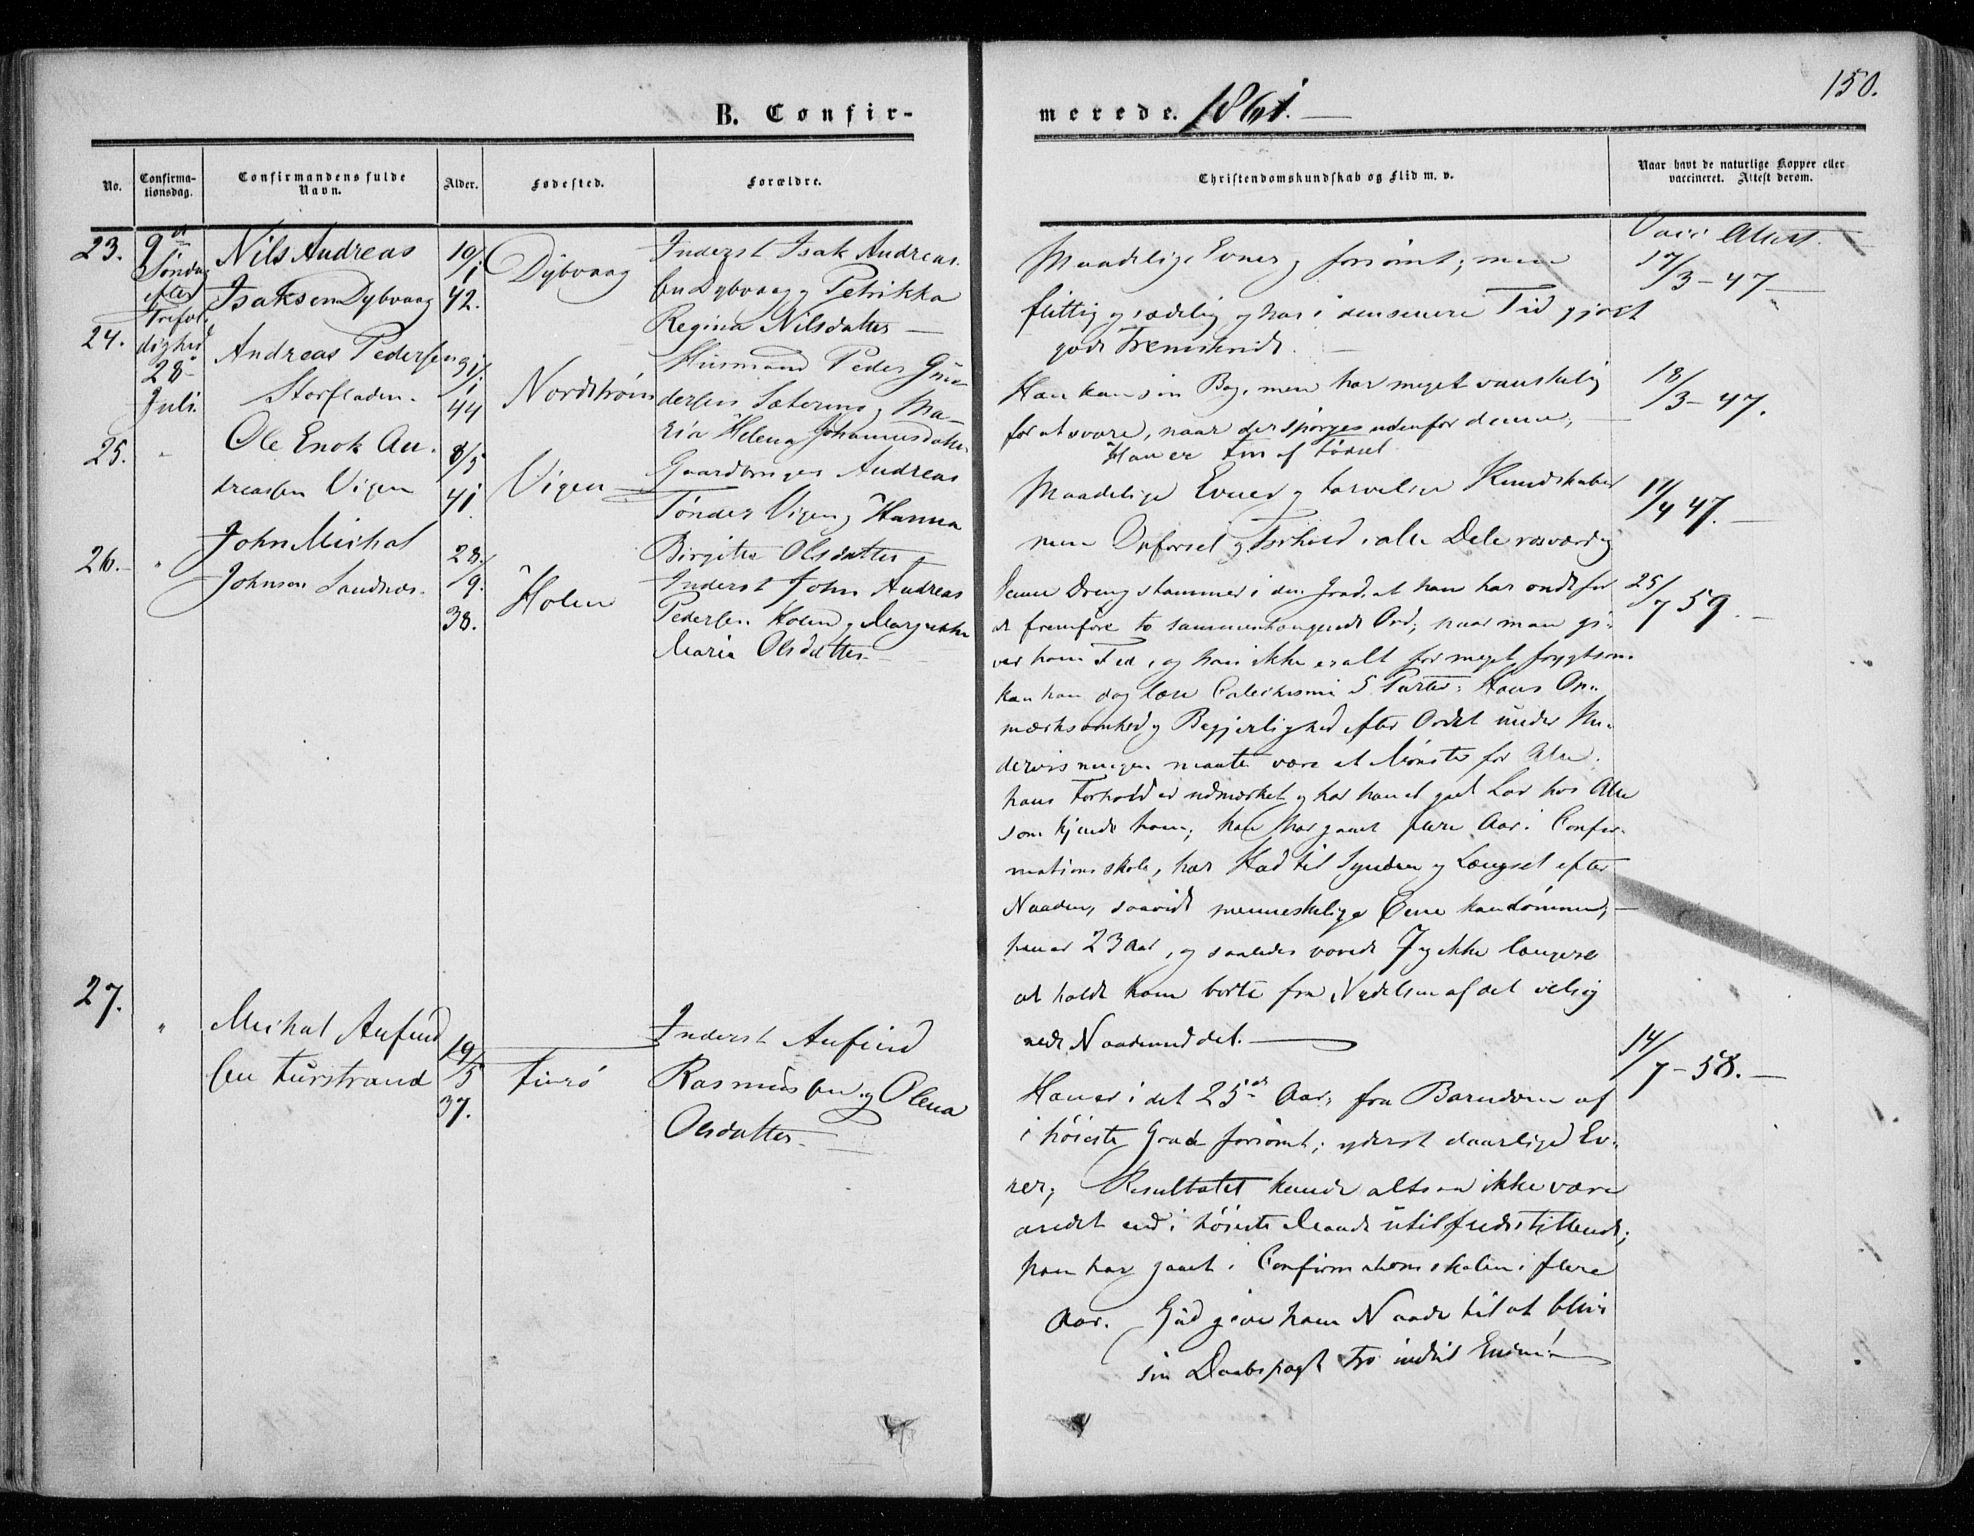 150.
B. Confir-
merede. 1861.
No.
Confirma-
tionsdag.
Confirmandens fulde
Navn.
Alder.
Fødested.
Forældre.
Christendomskundskab og Flid m. v.
Naar havt de naturlige Kopper eller
vaccineret. Attest derom.
23.
9de
Søndag
efter
Trefol-
dighed
28
Juli.
Nils Andreas
Isaksen Dybvaag
10/1
42.
Dybvaag
Inderst Isak Andreas-
sen Dybvaag, Petrikka
Regina Nilsdatter
Maadelige Evner, forsømt; men
flittig og sædelig og har i den senere Tid gjort
gode Fremskridt.
Vacc. Attest.
17/3-47
24.
Andreas Pedersen
Storfladen.
/1
44
Nordstrøm
Husmand Peder Gun-
dersen Sætereng, Ma-
ria Helena Johannesdatter
Han kan sin Bog, men har meget vanskelig
for at svare, naar der spørges udenfor denne,
Han er Fin af Fødsel
18/3-47.
25.
"
Ole Enok An-
dreassen Vigen
8/5
41
Vigen
Gaardbruger Andreas
Tønder Vigen, Hanna
Birgitte Olsdatter
Maadelige Evner og tarvelige Kundskaber
men Opførsel og Forhold i alle Dele rosværdig
17/4 47.
26.
"
John Michal
Johnsen Sandnes.
28/9.
38.
Holen
Inderst John Andreas
Pedersen Holen, Margrethe
Maria Olsdatter
Denne Dreng stammer i den Grad, at han har ondt for
at fremføre to sammenhængende Ord; naar man gi-
ver ham Tid, og han ikke er alt for meget frygtsom
kan han dog læse Catechismi 5 Parter. Hans Op-
mærksomhed og Begjerlighed efter Ordet under Un-
dervisningen maatte være et Mønster for Alle.
hans Forhold er udmærket og har han et godt Lov hos Alle
som kjende ham; han har gaaet flere Aar i Confir-
mationsskole, har Had til Synden og Længsel efter
Naaden, saavidt menneskelige Øine kan dømme,
han er 23 Aar, og saaledes vovede Jeg ikke længere
at holde ham borte fra Nydelsen af det velsig-
nede Naademiddel.
25/7 59.
27.
"
Michal Anfind
sen Furstrand
19/5
37.
Finsö
Inderst Anfind
Rasmussen og Olena
Olsdatter
Han er i det 25de Aar; fra Barndom af
i høieste Grad forsømt; yderst daarlige Ev-
ner; Resultatet kunde altsaa ikke være
andet end i høieste Maade utilfredsstillende;
han har gaaet i Confirmationsskolen i flere
Aar. Gud give ham Naade til at blive
sin Daabspagt tro indtil Enden!
14/7-58.